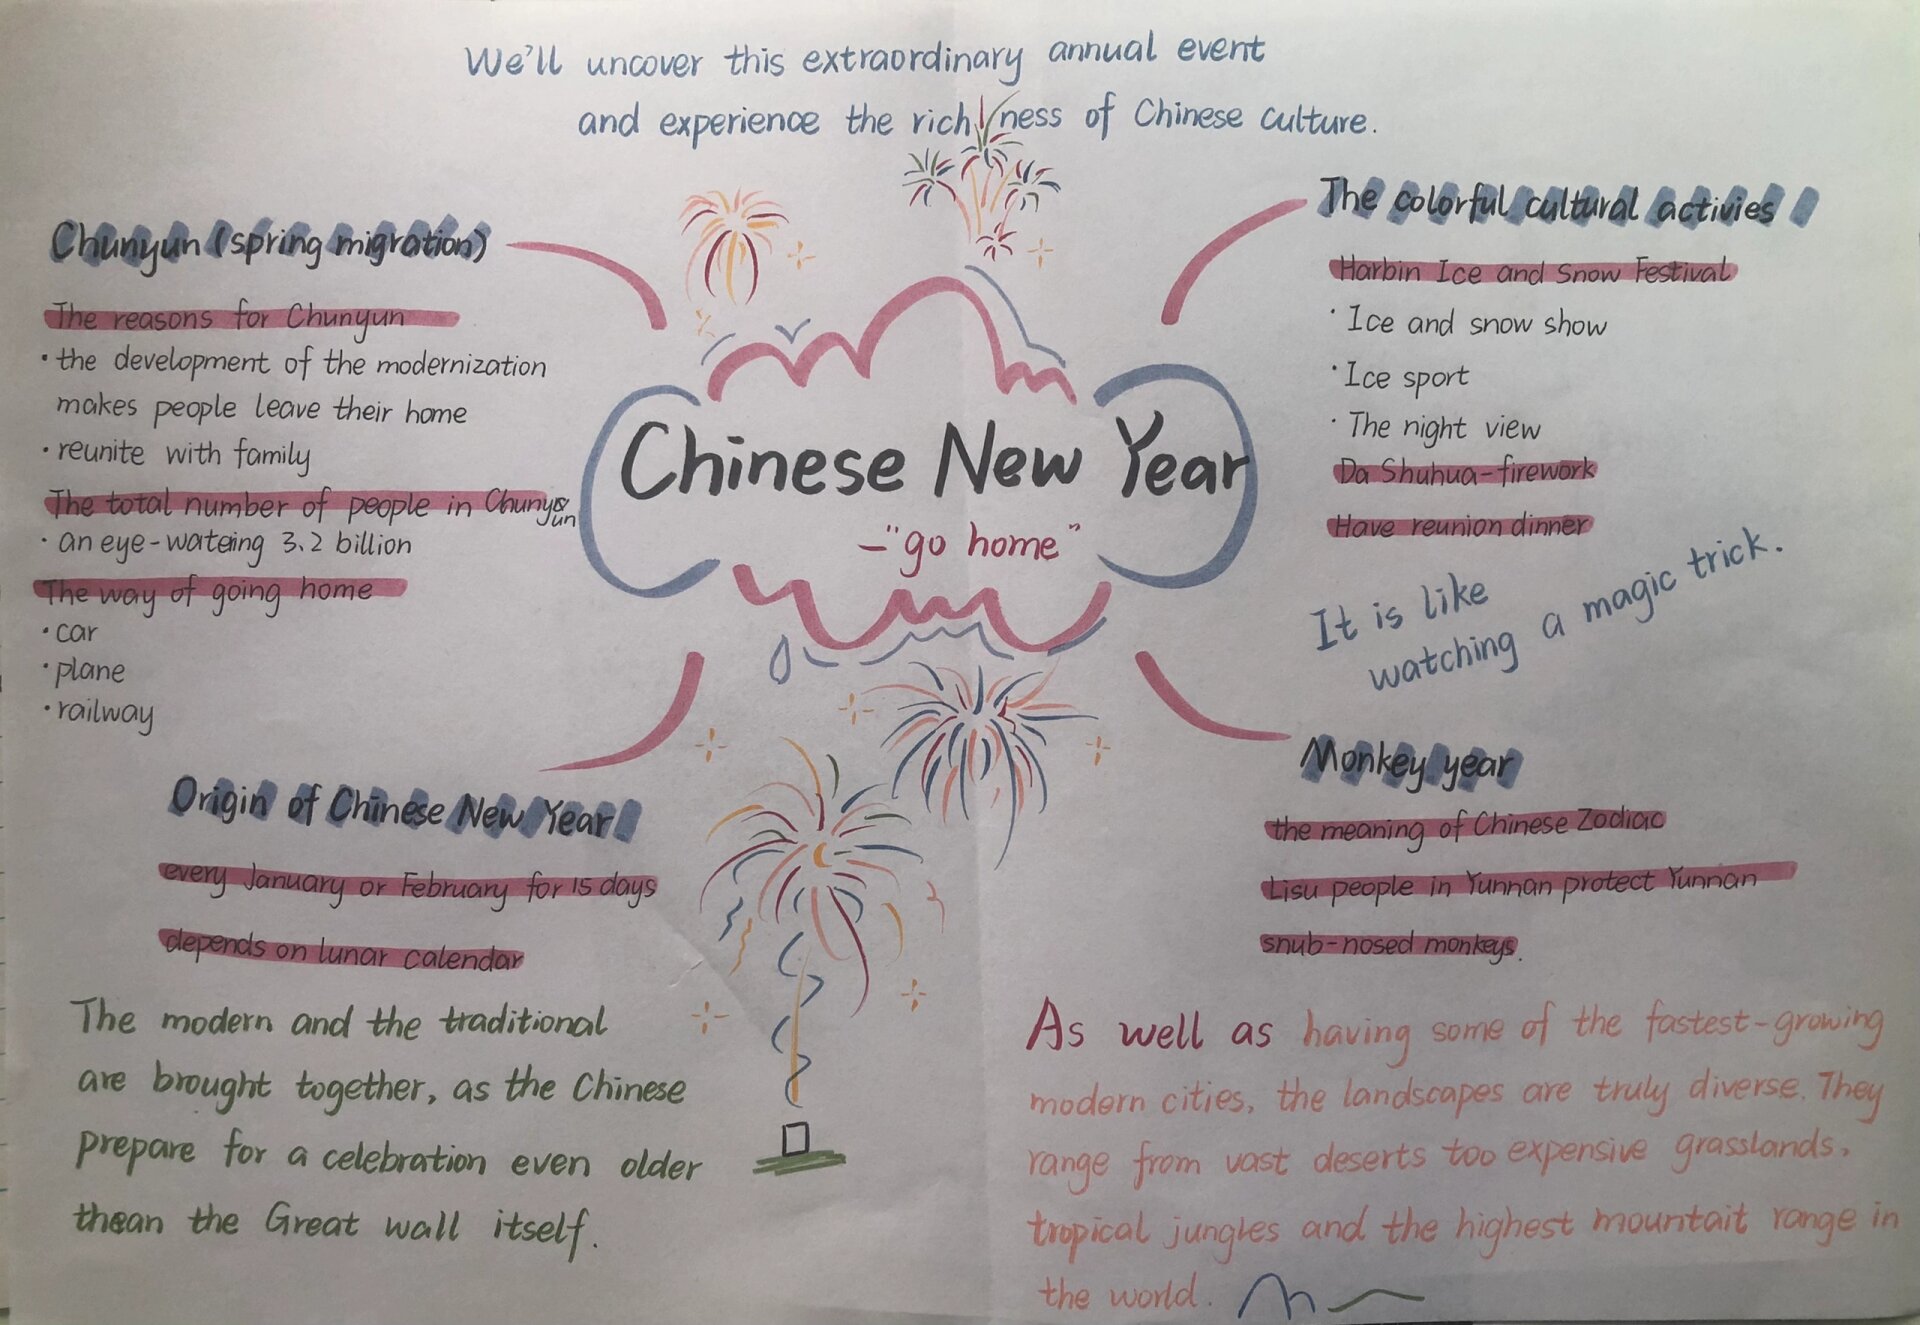 We'll uncover this extraordinary annual event
and experience the richness of Chinese culture.
Chunyun (spring migration)
The reasons for Chunyun
· the development of the modernization
makes people leave their home
· reunite with family
The total number of people in Chunyun
· an eye-watering 3.2 billion
The way of going home
· car
· plane
· railway
Chinese New Year
—"go home"
The colorful cultural activies
Harbin Ice and Snow Festival
· Ice and snow show
· Ice sport
· The night view
Da Shuhua-firework
Have reunion dinner
It is like
watching a magic trick.
Origin of Chinese New Year
every January or February for 15 days
depends on lunar calendar
The modern and the traditional
are brought together, as the Chinese
prepare for a celebration even older
than the Great wall itself.
Monkey year
the meaning of Chinese Zodiac
Lisu people in Yunnan protect Yunnan
snub-nosed monkeys.
As well as having some of the fastest-growing
modern cities, the landscapes are truly diverse. They
range from vast deserts too expensive grasslands,
tropical jungles and the highest mountait range in
the world.